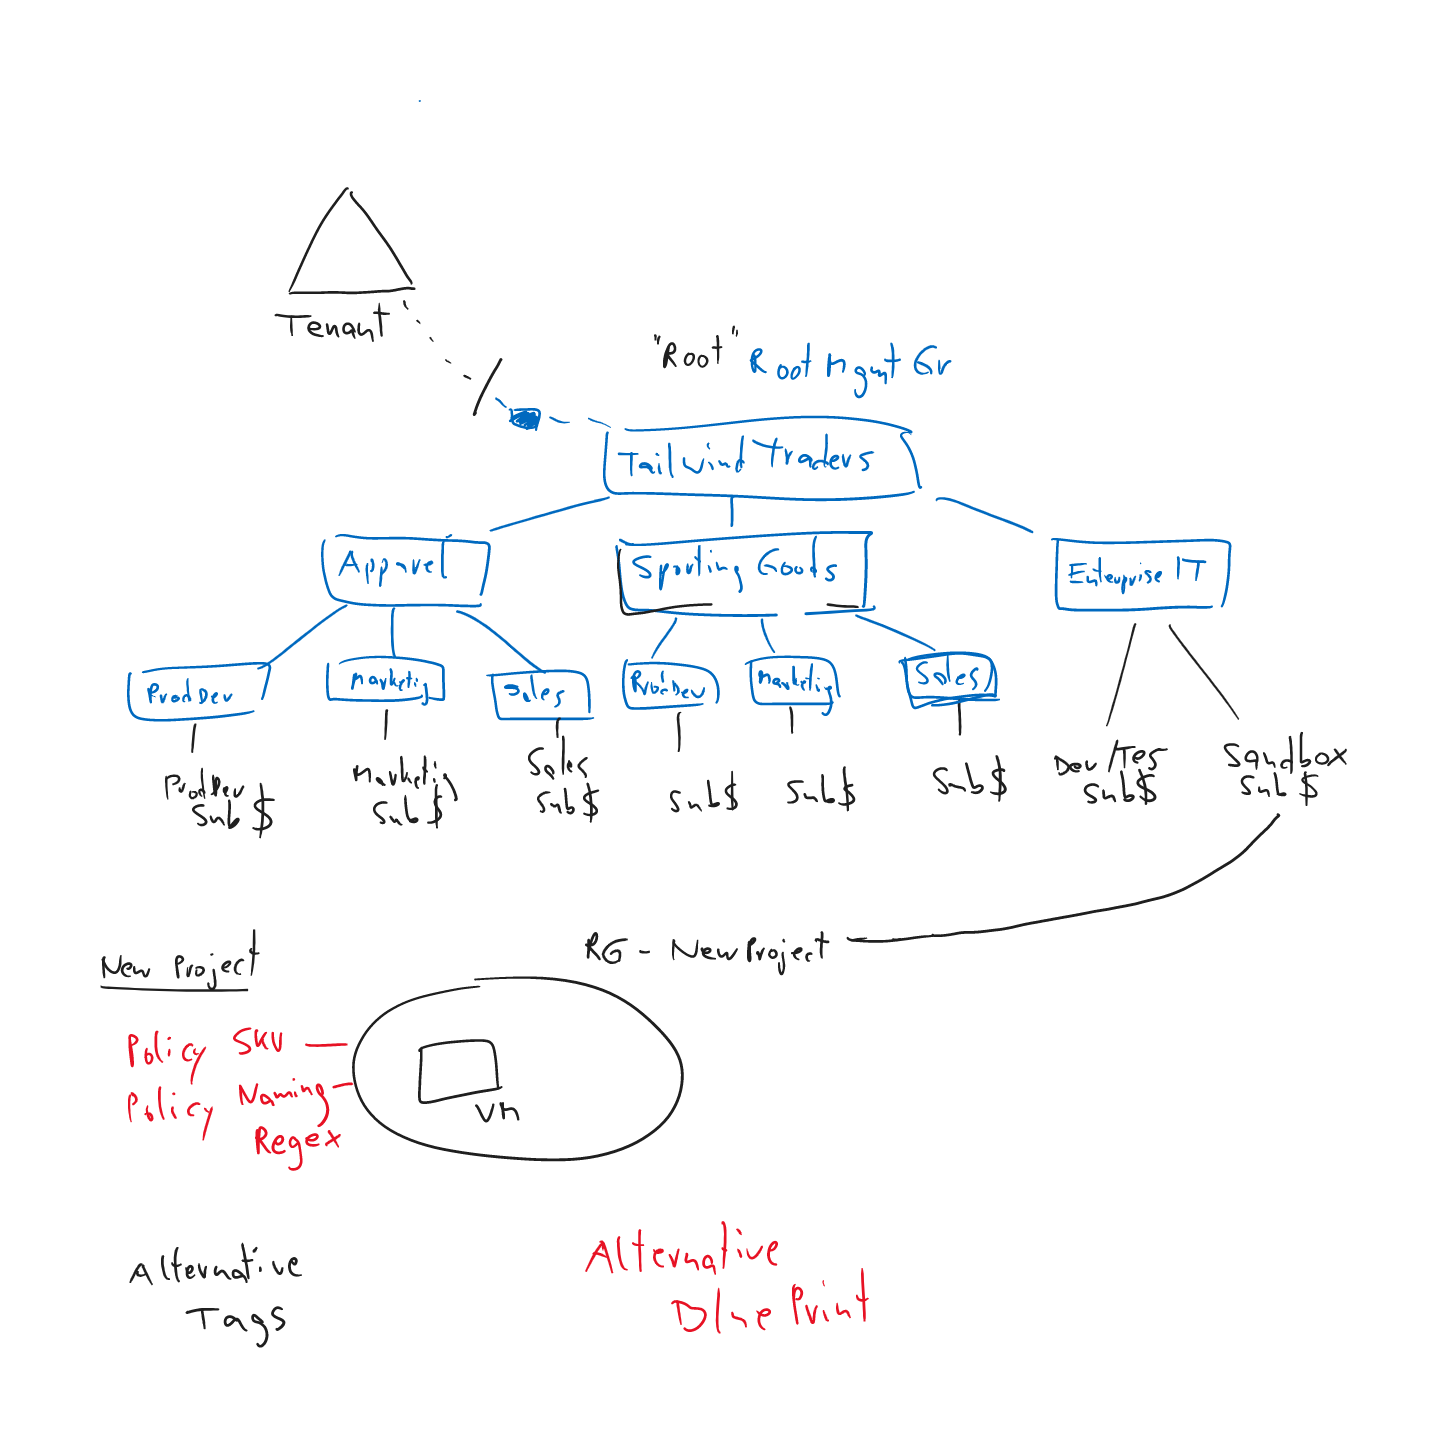 Tenant
"Root" Root Mgmt Gr
Tailwind Traders
Apparel
Sporting Goods
Enterprise IT
ProdDev
Marketig
Sales
ProdDev
Marketig
Sales
ProdDev
Sub $
Marketig
Sub $
Sales
Sub $
Sub $
Sub $
Sub $
Dev/Tes
Sub $
Sandbox
Sub $
New Project
RG - New Project
Policy SKU
Policy Naming
Regex
VM
Alternative
Tags
Alternative
BluePrint